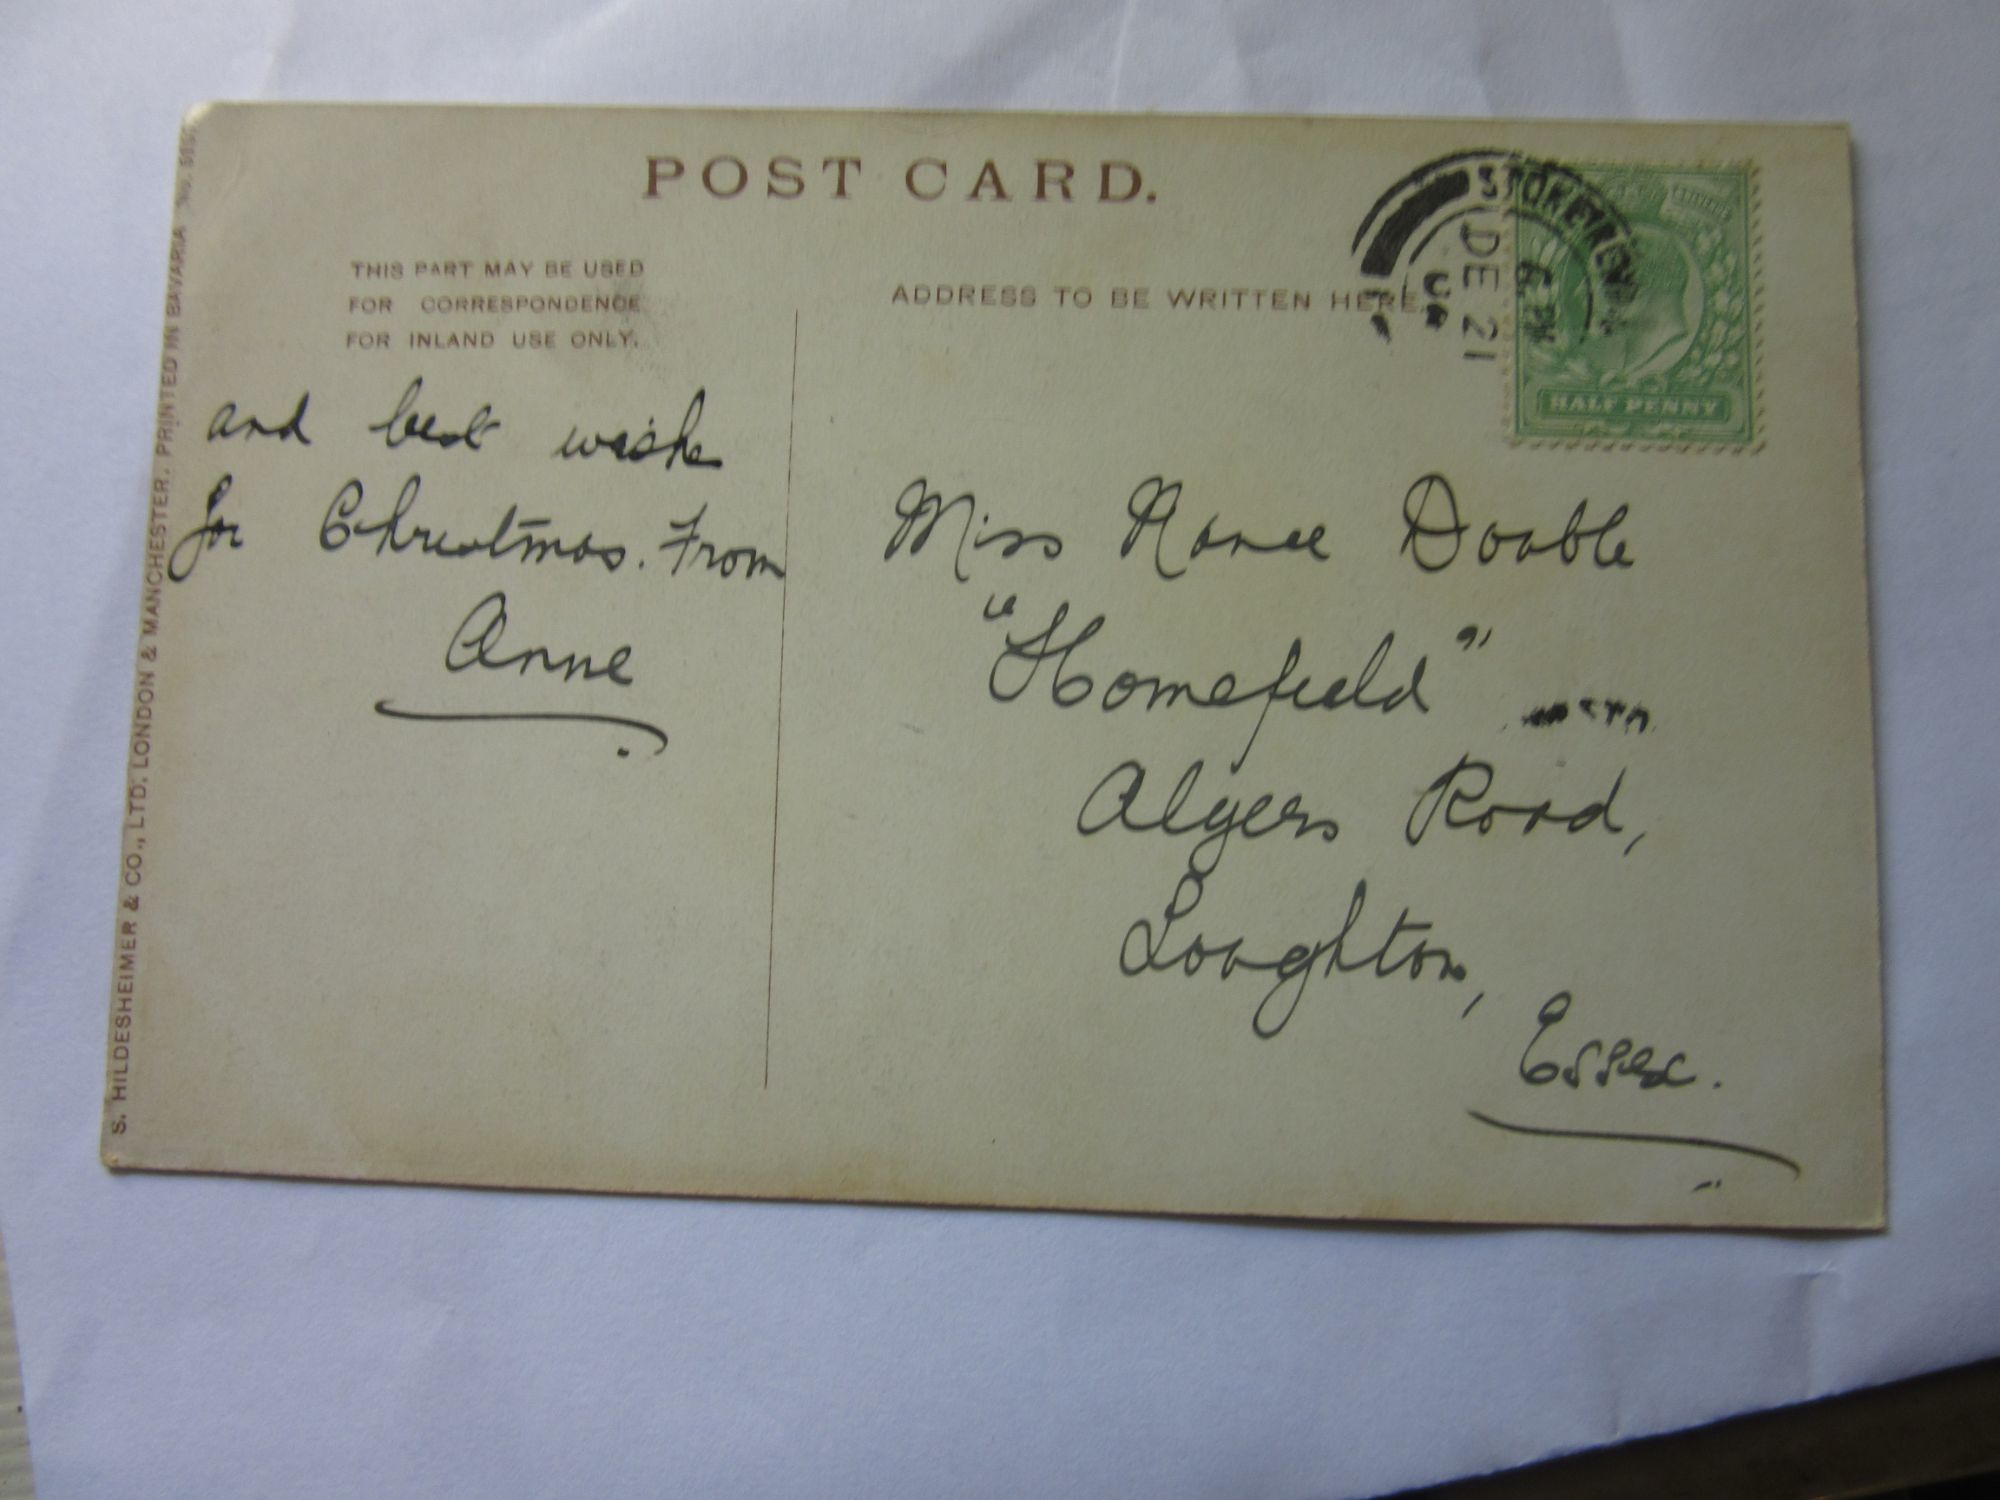 POST CARD.
THIS PART MAY BE USED
FOR CORRESPONDENCE
FOR INLAND USE ONLY.
ADDRESS TO BE WRITTEN HERE.
DE 21
6 PM
HALF PENNY
and best wishe
for Christmas. From
Anne
Miss Nance Double
"Homefield"
Algers Road,
Loughton,
Essex.
S. HILDESHEIMER & CO., LTD. LONDON & MANCHESTER. PRINTED IN BAVARIA No.